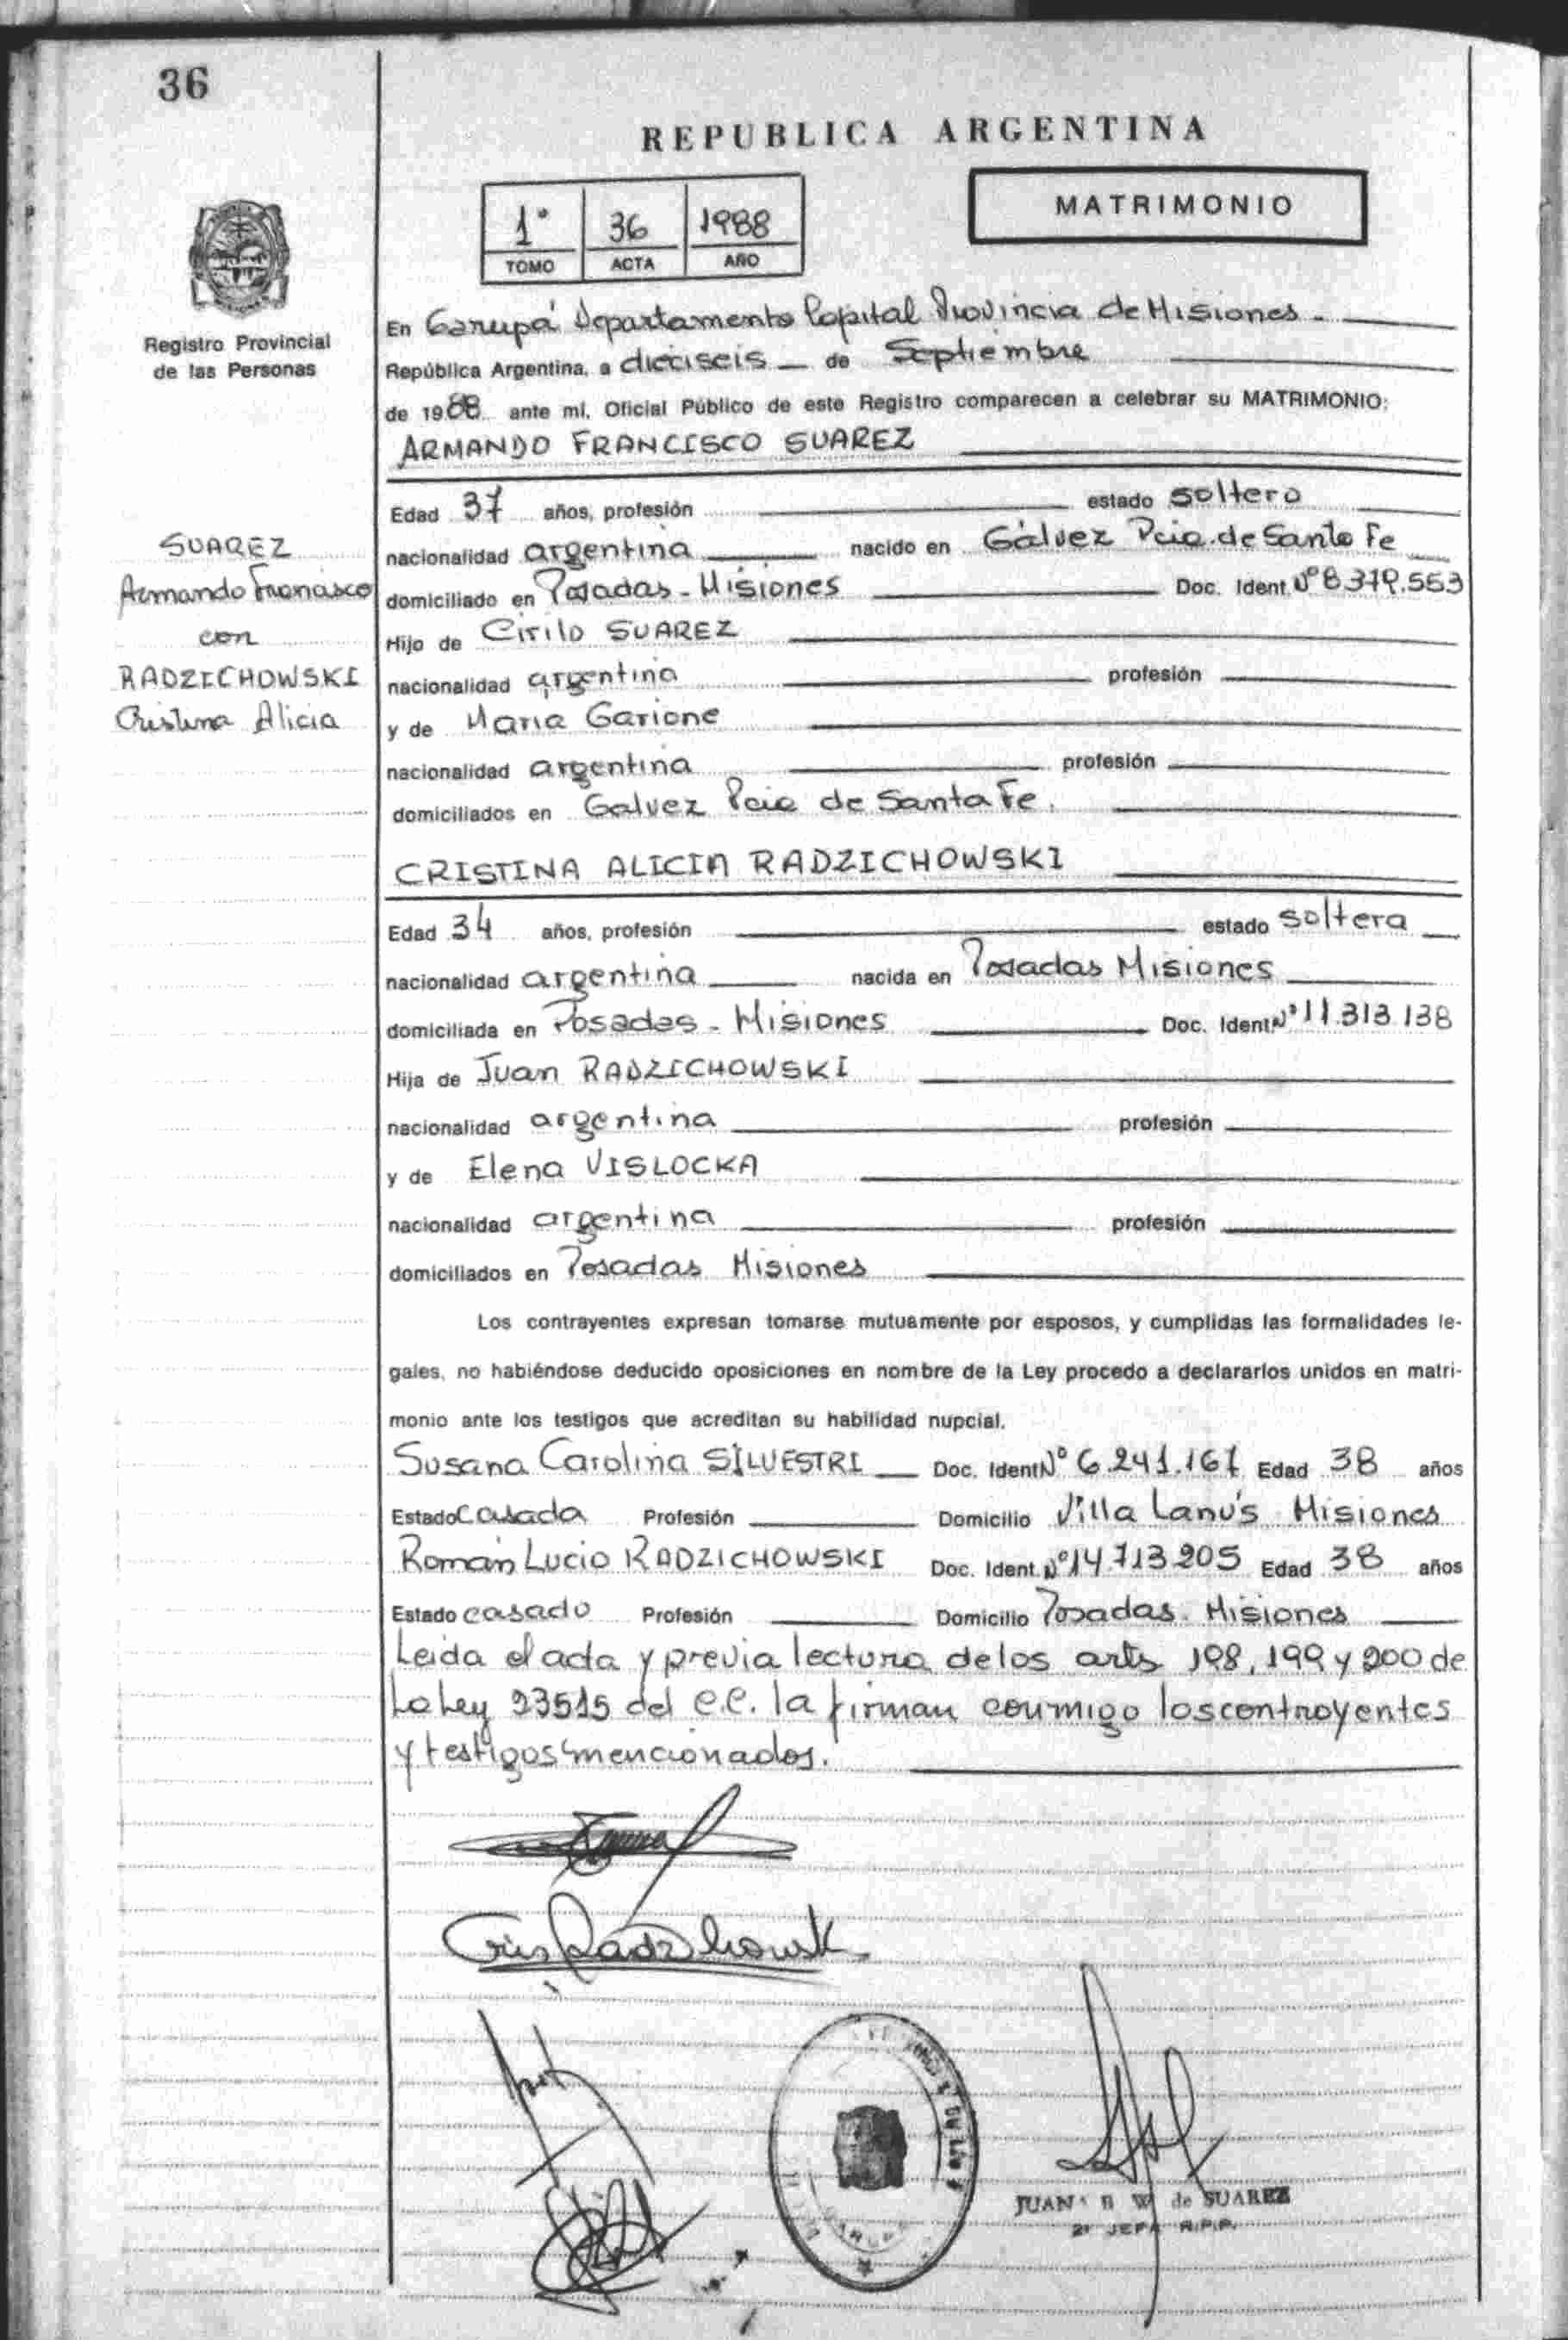 36
REPUBLICA ARGENTINA
1° 36 1988
TOMO ACTA AÑO
MATRIMONIO
Registro Provincial
de las Personas
En Garupá Departamento Capital Provincia de Misiones.
República Argentina, a dieciseis de Septiembre
de 1988 ante mí, Oficial Público de este Registro comparecen a celebrar su MATRIMONIO:
ARMANDO FRANCISCO SUAREZ
Edad 37 años, profesión estado soltero
SUAREZ
Armando Francisco
con
RADZICHOWSKI
Cristina Alicia
nacionalidad argentina nacido en Gálvez Pcia. de Santa Fe
domiciliado en Posadas - Misiones Doc. Ident. N° 8.379.553
Hijo de Cirilo SUAREZ
nacionalidad argentina profesión
y de Maria Garione
nacionalidad argentina profesión
domiciliados en Galvez Pcia de Santa Fe.
CRISTINA ALICIA RADZICHOWSKI
Edad 34 años, profesión estado soltera
nacionalidad argentina nacida en Posadas Misiones
domiciliada en Posadas - Misiones Doc. Ident N° 11.313.138
Hija de Juan RADZICHOWSKI
nacionalidad argentina profesión
y de Elena VISLOCKA
nacionalidad argentina profesión
domiciliados en Posadas Misiones
Los contrayentes expresan tomarse mutuamente por esposos, y cumplidas las formalidades le-
gales, no habiéndose deducido oposiciones en nombre de la Ley procedo a declararlos unidos en matri-
monio ante los testigos que acreditan su habilidad nupcial.
Susana Carolina SILVESTRI Doc. Ident N° 6.241.167 Edad 38 años
Estado Casada Profesión Domicilio Villa Lanús Misiones
Román Lucio RADZICHOWSKI Doc. Ident. N° 14.713.205 Edad 38 años
Estado casado Profesión Domicilio Posadas. Misiones
Leida el acta y previa lectura de los arts 198, 199 y 200 de
la Ley 23515 del C.C. la firman conmigo los contrayentes
y testigos mencionados.
Cris Radzichowski
JUANA de SUAREZ
2° JEFA R.P.P.